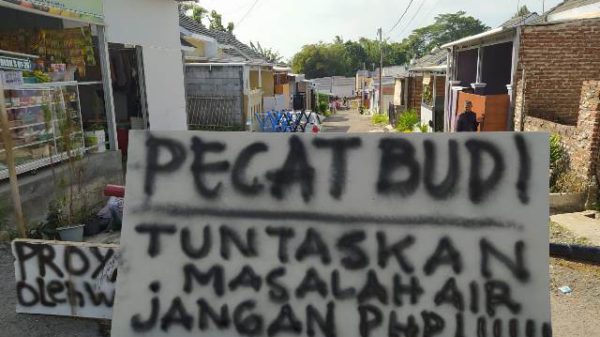 PECAT BUDI
TUNTASKAN
MASALAH AIR
JANGAN PHP!!!!!!
PROY
OLEH W